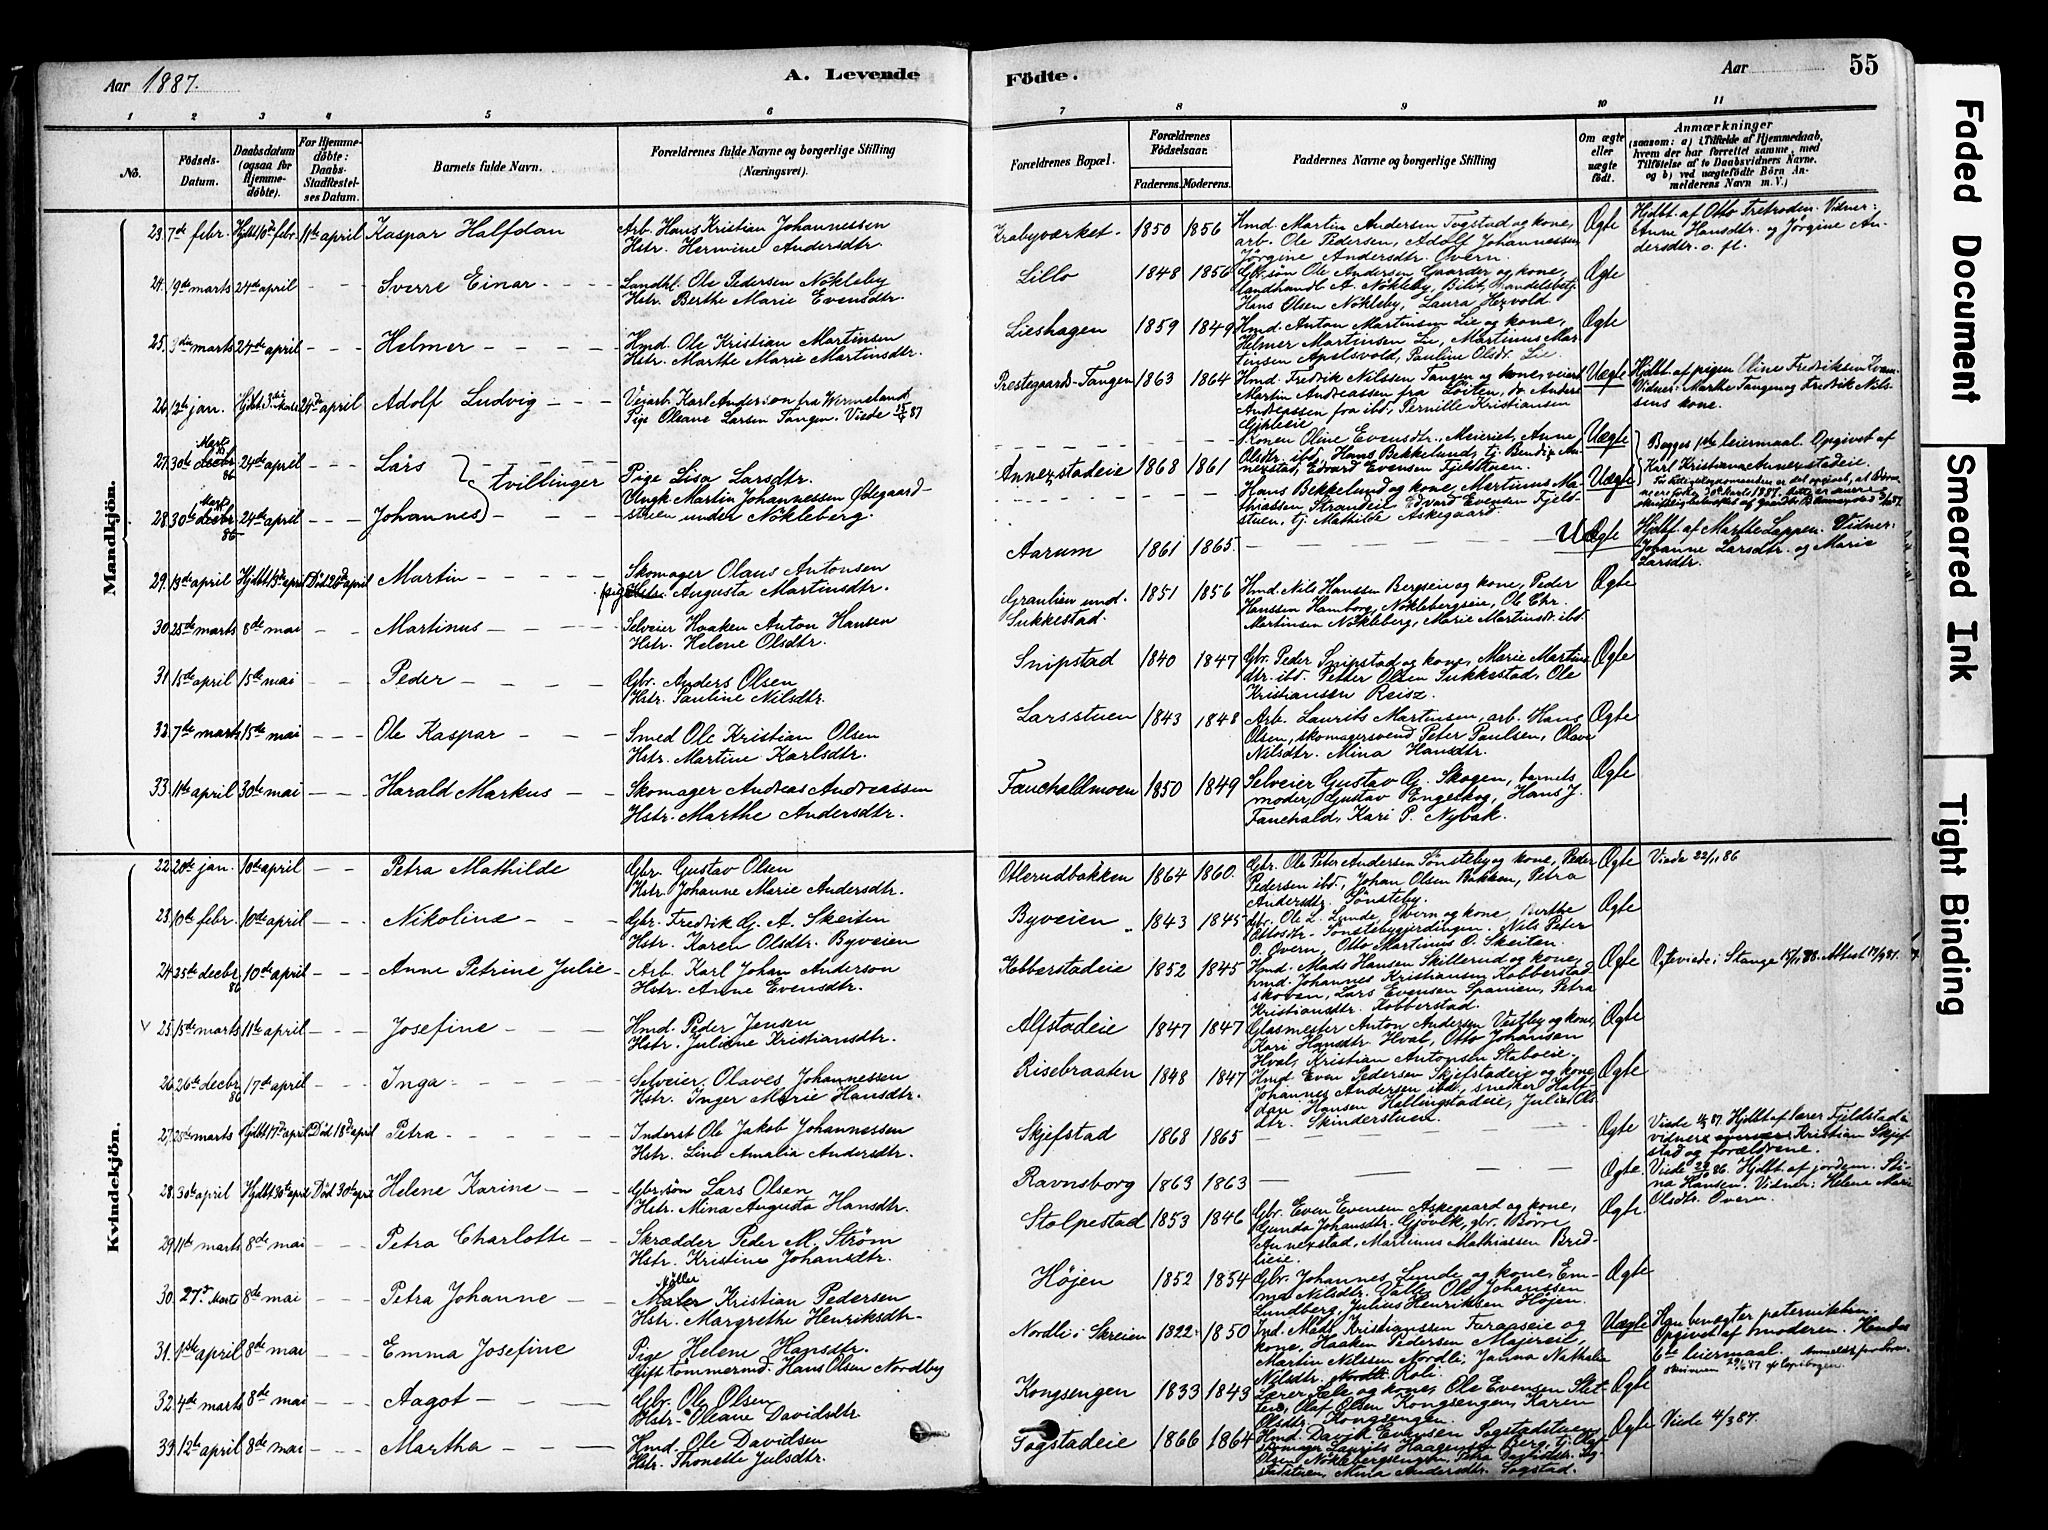 Aar 1887.
A. Levende
Födte.
Aar
55
1 2 3 4 5 6 7 8 9 10 11
No.
Födsels-Datum.
Daabsdatum (ogsaa for Hjemmedöbte).
For Hjemmedöbte: Daabs-Stadfæstelses Datum.
Barnets fulde Navn.
Forældrenes fulde Navne og borgerlige Stilling (Næringsvei).
Forældrenes Bopæl.
Forældrenes Födselsaar.
Faderens. Moderens.
Faddernes Navne og borgerlige Stilling
Om ægte eller uægte födt.
Anmærkninger
(saasom: a) i Tilfælde af Hjemmedaab, hvem der har forrettet samme, med Tilföielse af to Daabsvidners Navne, og b) ved uægtefödte Börn Anmelderens Navn m. V.)
Mandkjön.
23. 7de febr. Hjdbt 10de febr. 11te april Kaspar Halfdan
Arb. Hans Kristian Johannessen
Hstr. Hermine Andersdtr.
Krabyværket. 1850 1856
Hmd. Martin Andersen Togstad og kone,
arb. Ole Pedersen, Adolf Johannessen,
Jörgine Andersdtr. Overn.
Ægte
Hjdbt. af Otto Fretroden. Vidner:
Anne Hansdtr. og Jörgine Andersdtr. o. fl.
24. 19de marts 24de april - - - Sverre Einar - - -
Landhl. Ole Pedersen Nökleby
Hstr. Berthe Marie Evensdtr.
Lillo 1848 1856
Gbr.sön Ole Andersen Gaarder og kone,
landhandl. A. Nökleby, Bilit, handelsbetj.
Hans Olsen Nökleby, Laura Hezvold
Ægte
25. marts 24de april - - - Helmer - - - -
Hmd. Ole Kristian Martinsen
Hstr. Marthe Marie Martinsdtr.
Lieshagen 1859 1849
Hmd. Anton Martinsen Lie og kone,
Helmer Martinsen Lie, Martinus Martinsen Apelsvold, Pauline Olsdr. Lie
Ægte
26. 12te jan. 24de april Adolf Ludvig - - -
Veiarb. Karl Anderson fra Wermeland
Pige Oleane Larsen Tangen.
Prestegaards-Tangen 1863 1864
Hmd. Fredrik Nilssen Tangen og kone, veiarb.
Martin Andreassen fra Löiten, do Anders
Andreassen fra ibd., Pernille Kristiansen
Uægte
Hjdbt. af pigen Oline Fredriksen
Vidner: Marthe Tangen og Fredrik Nilssens kone.
27. 30te Marts decbr 86 24de april - - - Lars
tvillinger
Pige Lisa Larsdtr.
Ungk. Martin Johannessen Ødegaardstuen under Nökleberg.
28. 30te Marts decbr 86 24de april - - - Johannes
Annexstadeie 1868 1861
Konen Oline Evensdtr., Meieriet, Anne
Olsdtr. ibd., Hans Bekkelund, tj. Bendix Annexstad, Edvard Evensen Fjeldstuen.
Hans Bekkelund og kone, Martinus Mathiassen Strandeie, Edvard Evensen Fjeldstuen, tj. Mathilde Askegaard.
Uægte
Uægte
Begges 1ste leiermaal. Opgivet af
Karl Kristiansen Annexstadeie.
29. 13de april Hjdbt 13de april Död 21de april Martin - - - -
Skomager Olaus Antonsen
pige Hstr. Augusta Martinsdtr.
Aarum 1861 1865.
Uægte
Hjdbt. af Marthe Lappen. Vidner:
Johanne Larsdtr. og Marie
Larsdtr.
30. 25de marts 8de mai - - Martinus - - -
Selveier Haaken Anton Hansen
Hstr. Helene Olsdtr.
Granlien und. Sukkestad. 1851 1856
Hmd. Nils Hanssen Bergseie og kone, Peder
Hanssen Hamborg, Nöklebergseie, Ole Chr.
Martinsen Nökleberg, Marie Martinsdr. ibd.
Ægte
31. 15de april 15de mai - - - Peder - - - -
Gbr. Anders Olsen
Hstr. Pauline Nilsdtr.
Snipstad 1840 1847
Gbr. Peder Snipstad og kone, Marie Martinsdtr. ibd. Petter Olsen Sukkestad, Ole
Kristiansen Reisz.
Ægte
32. 7de marts 15de mai - - - Ole Kaspar - - -
Smed Ole Kristian Olsen
Hstr. Martine Karlsdtr.
Larsstuen 1843 1848
Arb. Laurits Martinsen, arb. Hans
Olsen, skomagersvend Peter Paulsen, Olave
Nilsdtr. Mina Hansdtr.
Ægte
33. 11te april 30te mai - - - Harald Markus - -
Skomager Andreas Andreassen
Hstr. Marthe Andersdtr.
Fauchaldmoen 1850 1849
Selveier Gustav G. Skogen, barnets
moder, Gustav Engeskog, Hans J.
Fauchald, Kari P. Nybak.
Ægte
Kvindekjön.
22. 20de jan. 10de april - - Petra Mathilde
Gbr. Gustav Olsen
Hstr. Johanne Marie Andersdtr.
Otterudbakken 1864 1860.
Gbr. Ole Peter Andersen Sönsteby og kone, Peder
Pedersen ibd., Johan Olsen Bakken, Petra
Andersdtr. Sönsteby.
Ægte
Viede 22/11 86
23. 10de febr. 10de april - - - Nikoline - - -
Gbr. Fredrik G. A. Skeiten
Hstr. Karen Olsdtr. Byveien
Byveien 1843 1845
Gbr. Ole L. Lunde, Overn og kone, Berthe
Ottosdtr. Sönstebygjerdingen. Nils Peter
O. Overn, Otto Martinus O. Skeiten.
Ægte
24. 25de decbr 86 10de april - - - Anne Petrine Julie
Arb. Karl Johan Anderson
Hstr. Anne Evensdtr.
Kobberstadeie 1852 1845
Hmd. Mads Hansen Skillerud og kone,
hmd. Johannes Kristiansen Kobberstadskoven, Lars Evensen Spanien, Petra
Kristiansdtr. Kobberstad.
Ægte
Ægteviede i Stange
25. 15de marts 11te april - - - Josefine - - -
Hmd. Peder Jensen
Hstr. Juliane Kristiansdtr.
Alfstadeie 1847 1847
Glasmester Anton Andersen Vestby og kone,
Kari Hansdtr. Hval, Otto Johansen
Hval, Kristian Antonsen Staboeie.
Ægte
26. 26de decbr 86 17de april - - - Inga - - -
Selveier Olaves Johannessen
Hstr. Inger Marie Hansdtr.
Risebraaten 1848 1847
Hmd. Even Pedersen Skjefstadeie og kone,
Johannes Andersen ibd., snedker Halfdan Hansen Hallingstadeie, Julie Olsdtr. Skinderstuen.
Ægte
27. 25de marts Hjdbt 17de april Död 18de april Petra - - -
Inderst Ole Jakob Johannessen
Hstr. Line Amalia Andersdtr.
Skjefstad 1868 1865
Ægte
Hjdbt af lærer Fjeldstad
vidner Kristian Skjefstad og forældrene.
28. 30te april Hjdbt 30te april Död 30te april Helene Karine - -
Gbr.sön Lars Olsen
Hstr. Mina Augusta Hansdtr.
Ravnsborg 1863 1863
Ægte.
Hjdbt. af jordem. Stina Hansen. Vidner: Helene Marie
Olsdtr. Overn.
29. 11te marts 8de mai - - - Petra Charlotte - -
Skrædder Peder M. Ström
Hstr. Kristine Johansdtr.
Stolpestad 1853 1846
Gbr. Even Evensen Askegaard og kone,
Gunda Johansdtr. Gjövik, gbr. Börre
Annexstad, Martinus Mathiassen Bredlieie.
Ægte.
30. 27de Marts 8de mai - - Petra Johanne - -
Möller
Maler Kristian Pedersen
Hstr. Margrethe Henriksdtr.
Höjen 1852 1854
Gbr. Johannes Lunde og kone, Emma Nilsdtr. Valle, Ole Johansen
Lundberg, Julius Henriksen Höjen.
Ægte
31. 1ste april 8de mai - - - Emma Josefine
Pige Helene Hansdtr.
Gift tömmermd. Hans Olsen Nordby
Nordli i Skreien 1822 1850
Ind. Mads Kristianssen Faraaseie og
kone, Haaken Pedersen Majereie,
Martin Nilssen Nordli, Janna Nathalie
Nilsdtr. Roli.
Uægte
Han benegter paterniteten.
Opgivet af moderen. Hendes
6te leiermaal.
32. 4de marts 8de mai - - - Aagot - - -
Gbr. Ole Olsen
Hstr. Oleane Davidsdtr.
Kongsengen 1833 1843
Lærer Sæle og kone, Ole Evensen Stetten, Olaf Olsen Kongsengen, Karen
Olsdtr. Kongsengen.
Ægte
33. 12te april 8de mai - - - Martha - - -
Hmd. Ole Davidsen
Hstr. Thonette Julsdtr.
Sogstadeie 1866 1864
Hmd. David Evensen Sogstadstuen,
skomager Laurits Haagensen Berg,
Olsen Nöklebergsengen, Petra
Mina Andersdtr. Sogstad.
Ægte
Viede 4/3 87.
Faded Document
Smeared Ink
Tight Binding